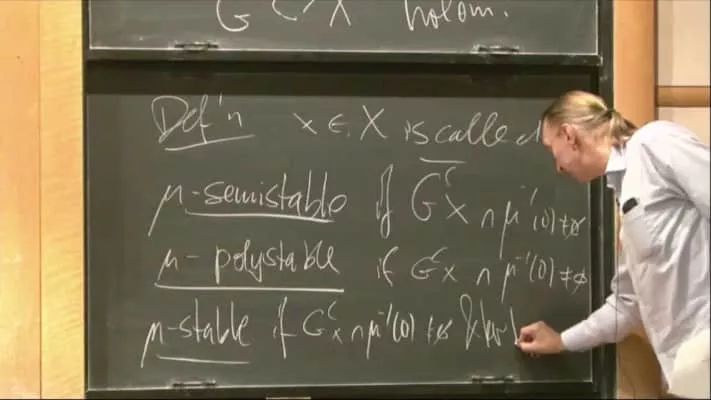 G^c X holom.
Def'n x ∈ X is called
μ-semistable if G^c x ∩ μ^{-1}(0) ≠ ∅
μ-polystable if G^c x ∩ μ^{-1}(0) ≠ ∅
μ-stable if G^c x ∩ μ^{-1}(0) ≠ ∅ &